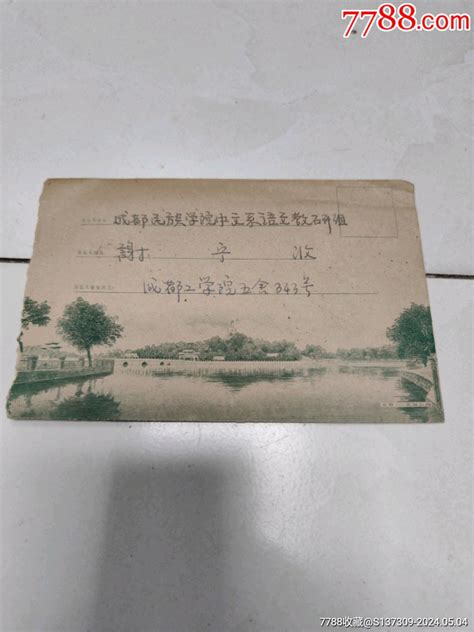 7788.com
成都民族学院中文系语文教研组
謝 宁 收
成都工学院五舍343号
7788收藏@S137309-2024.05.04